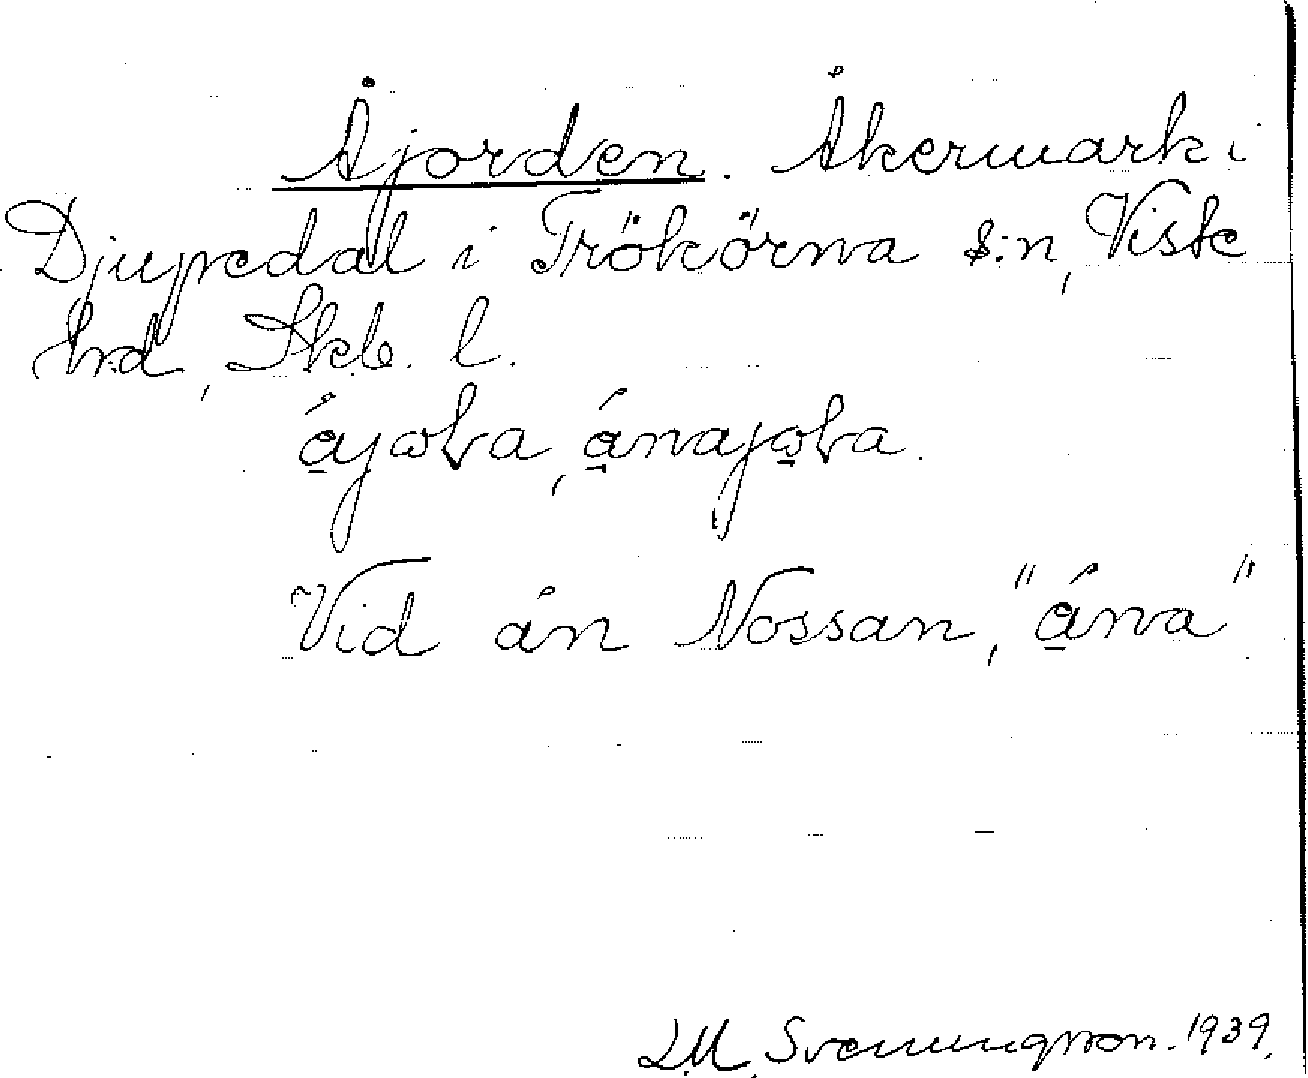 Åjorden. Åkermark i
Djupedal i Trökörna s:n, Viste
hd, Skb. l.
Vid ån Nossan, "åna".
LM. Svenungsson. 1939.